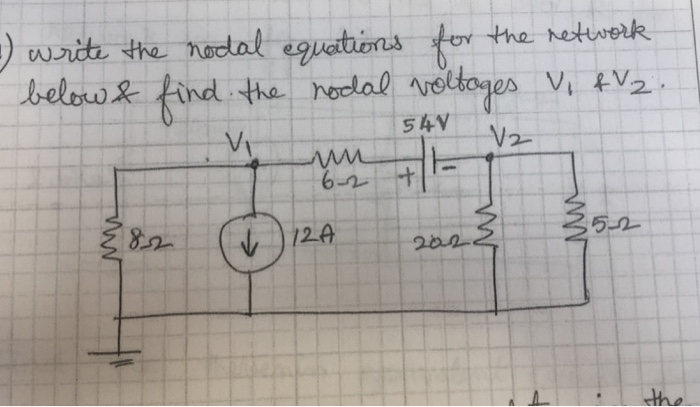 ) write the nodal equations for the network
below & find the nodal voltages V1 & V2.
54V
V1
V2
6Ω
+
-
8Ω
12A
20Ω
5Ω
the